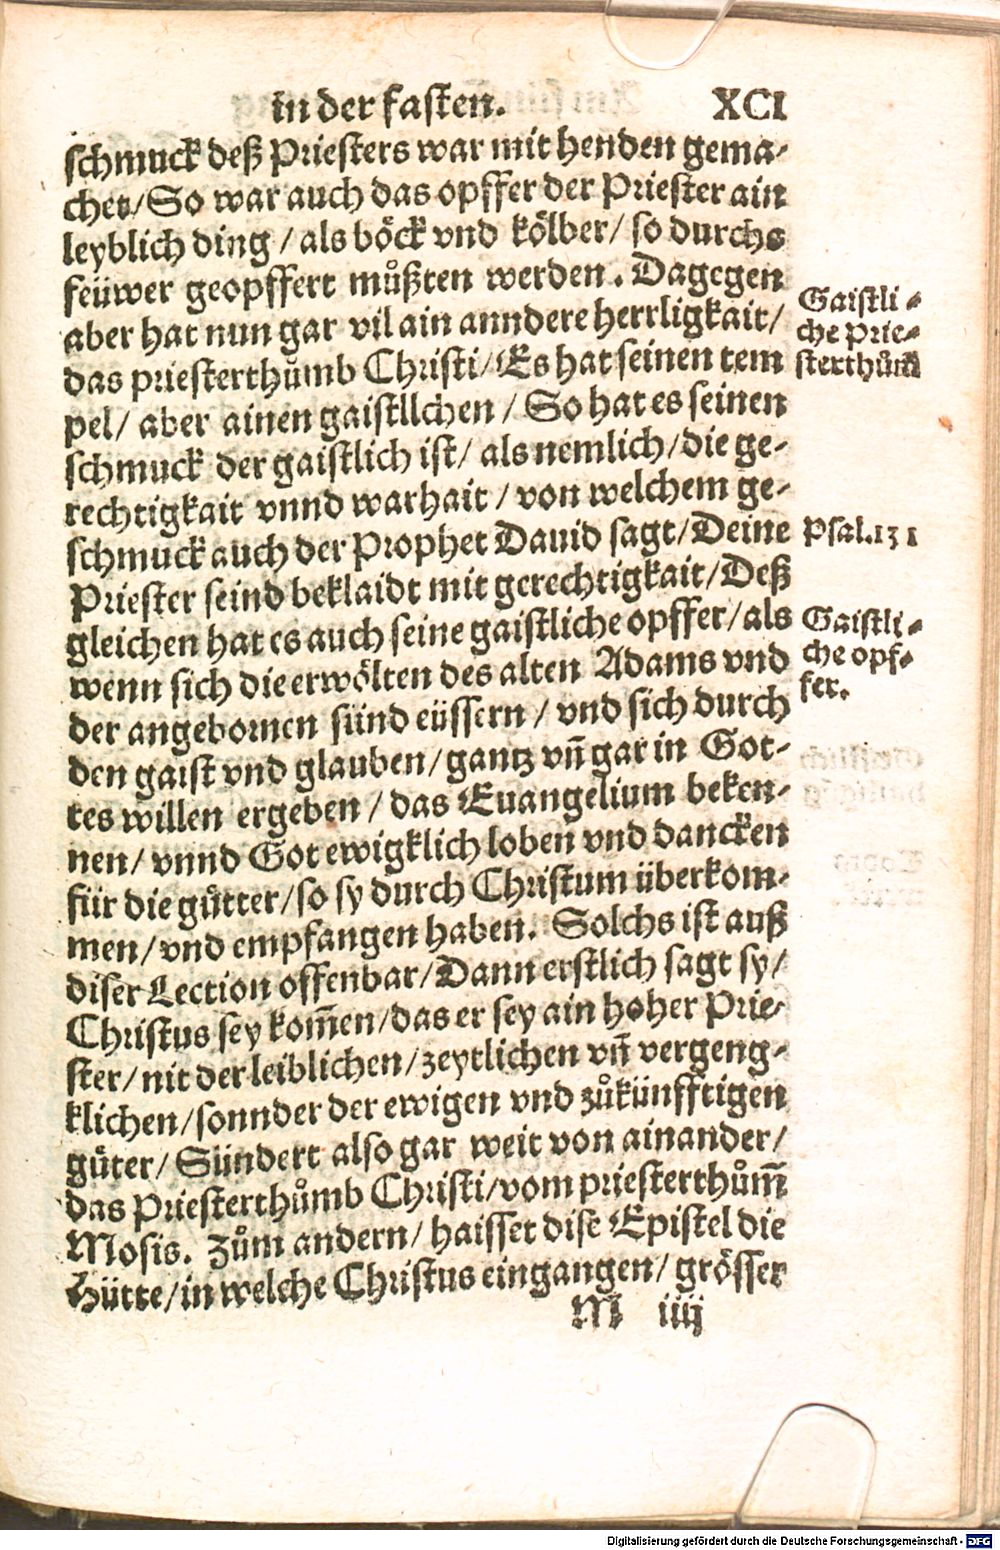 in der fasten. XCI
schmuck deß Priesters war mit henden gema-
chet/So war auch das opffer der Priester ain
leyblich ding / als böck vnd kölber/ so durchs
feüwer geopffert můßten werden. Dagegen
aber hat nun gar vil ain anndere herrligkait/
das priesterthůmb Christi/Es hat seinen tem
pel/ aber ainen gaistllchen / So hat es seinen
schmuck der gaistlich ist/ als nemlich/die ge-
rechtigkait vnnd warhait / von welchem ge-
schmuck auch der Prophet Dauid sagt/Deine
Priester seind beklaidt mit gerechtigkait/Deß
gleichen hat es auch seine gaistliche opffer/als
wenn sich die erwölten des alten Adams vnd
der angebornen sünd eüssern / vnd sich durch
den gaist vnd glauben/gantz vn̄ gar in Got-
tes willen ergeben / das Euangelium beken-
nen/ vnnd Got ewigklich loben vnd dancken
für die gu̇tter/so sy durch Christum überkom-
men/vnd empfangen haben. Solchs ist auß
diser Lection offenbar/Dann erstlich sagt sy/
Christus sey kom̄en/das er sey ain hoher Prie-
ster/nit der leiblichen/zeytlichen vn̄ vergeng-
klichen/sonnder der ewigen vnd zůkünfftigen
güter/ Sündert also gar weit von ainander/
das Priesterthůmb Christi/vom priesterthům̄
Mosis. Zům andern/ haisset dise Epistel die
Hütte/in welche Christus eingangen/ grösser
M iiij
Gaistli-
che Prie-
sterthům̄
Psal.131
Gaistli-
che opf-
fer.
Digitalisierung gefördert durch die Deutsche Forschungsgemeinschaft - DFG